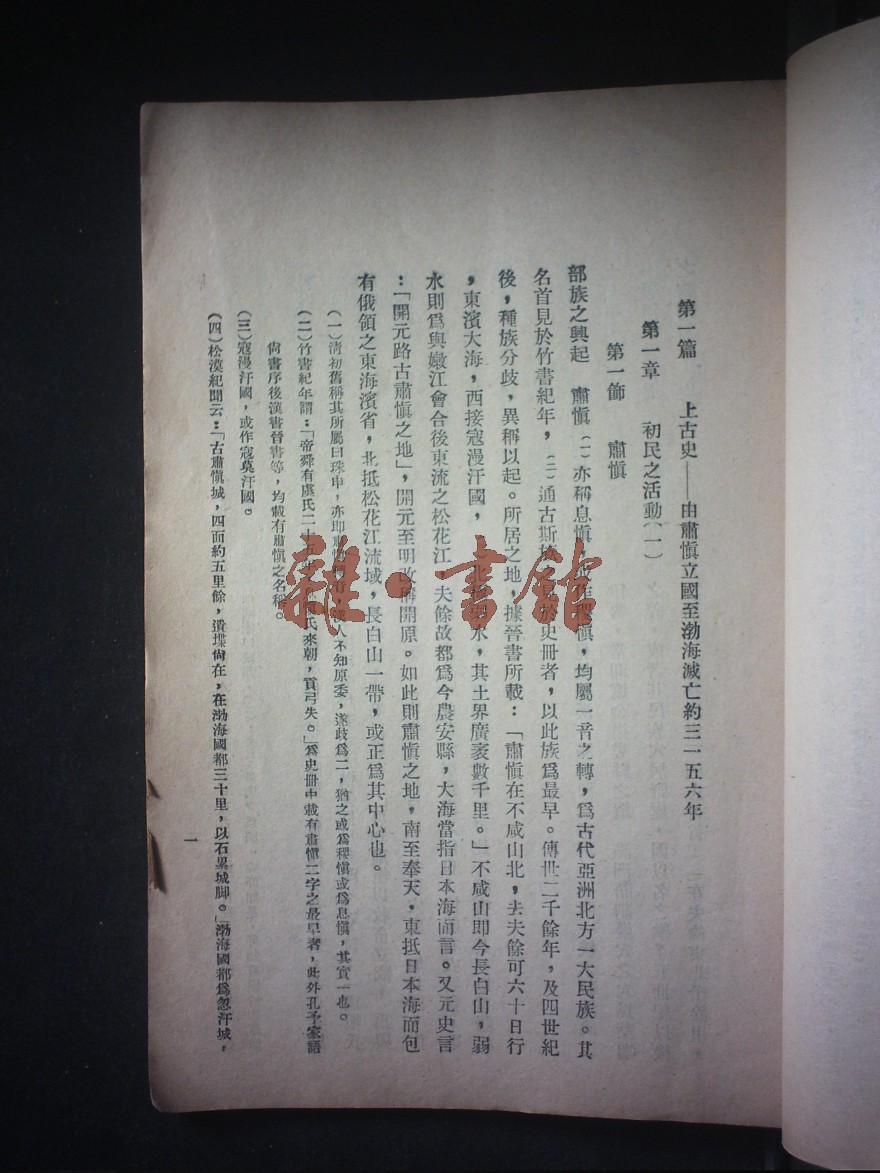 第一篇　上古史——由肅愼立國至渤海滅亡約三一五六年
第一章　初民之活動(一)
第一節　肅愼
部族之興起　肅愼(一)亦稱息愼，或作稷愼，均屬一音之轉，爲古代亞洲北方一大民族。其
名首見於竹書紀年，(二)通古斯族之見於史冊者，以此族爲最早。傳世二千餘年，及四世紀
後，種族分歧，異稱以起。所居之地，據晉書所載：「肅愼在不咸山北，去夫餘可六十日行
，東濱大海，西接寇漫汗國，北極弱水，其土界廣袤數千里。」不咸山卽今長白山，弱
水則爲與嫩江會合後東流之松花江，夫餘故都爲今農安縣，大海當指日本海而言。又元史言
：「開元路古肅愼之地」，開元至明改稱開原。如此則肅愼之地，南至奉天，東抵日本海而包
有俄領之東海濱省，北抵松花江流域，長白山一帶，或正爲其中心也。
(一)淸初舊稱其所屬曰珠申，亦卽肅愼轉音，漢人不知原委，遂歧爲二，猶之或爲稷愼或爲息愼，其實一也。
(二)竹書紀年謂：「帝舜有虞氏二十五年，氏來朝，貢弓矢。」爲史冊中載有肅愼二字之最早者，此外孔子家語
尙書序後漢書晉書等，均載有肅愼之名稱。
(三)寇漫汗國，或作寇莫汗國。
(四)松漠紀聞云：「古肅愼城，四面約五里餘，遺堞尙在，在渤海國都三十里，以石累城脚。」渤海國都爲忽汗城，
一
雜·書館